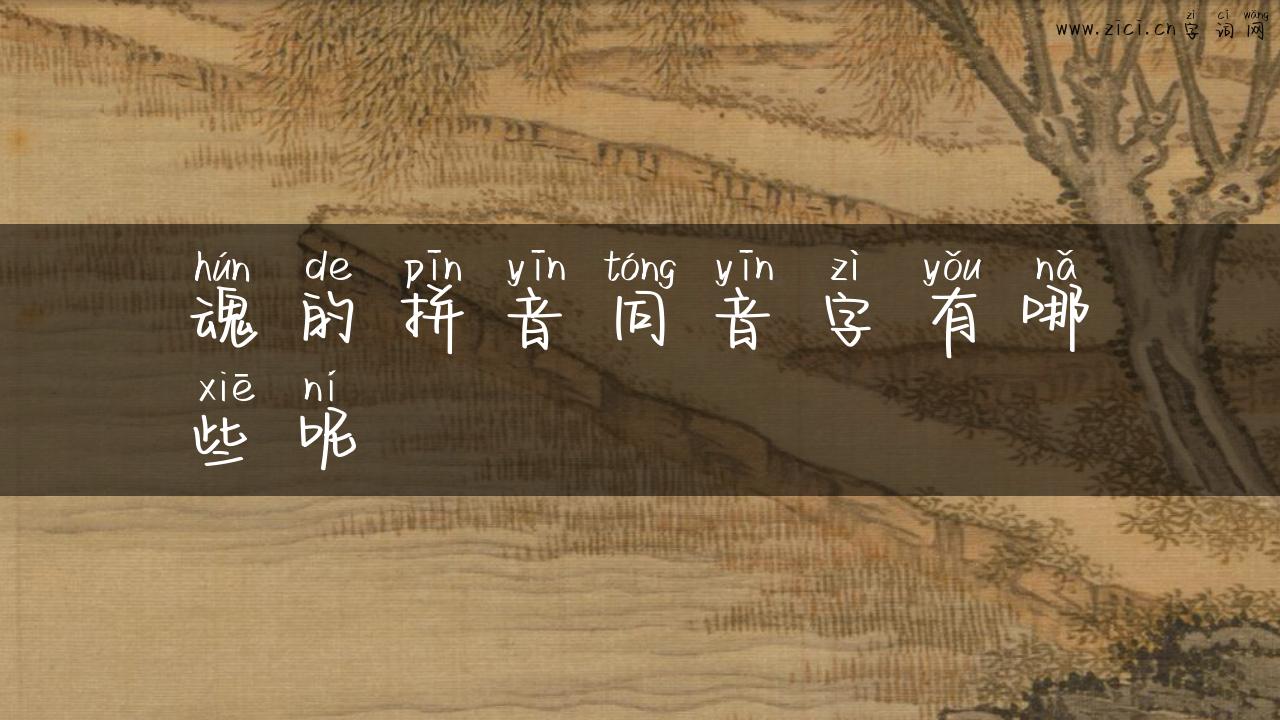 zì cí wǎng
www.zici.cn字词网
hún de pīn yīn tóng yīn zì yǒu nǎ
魂的拼音同音字有哪
xiē ní
些呢